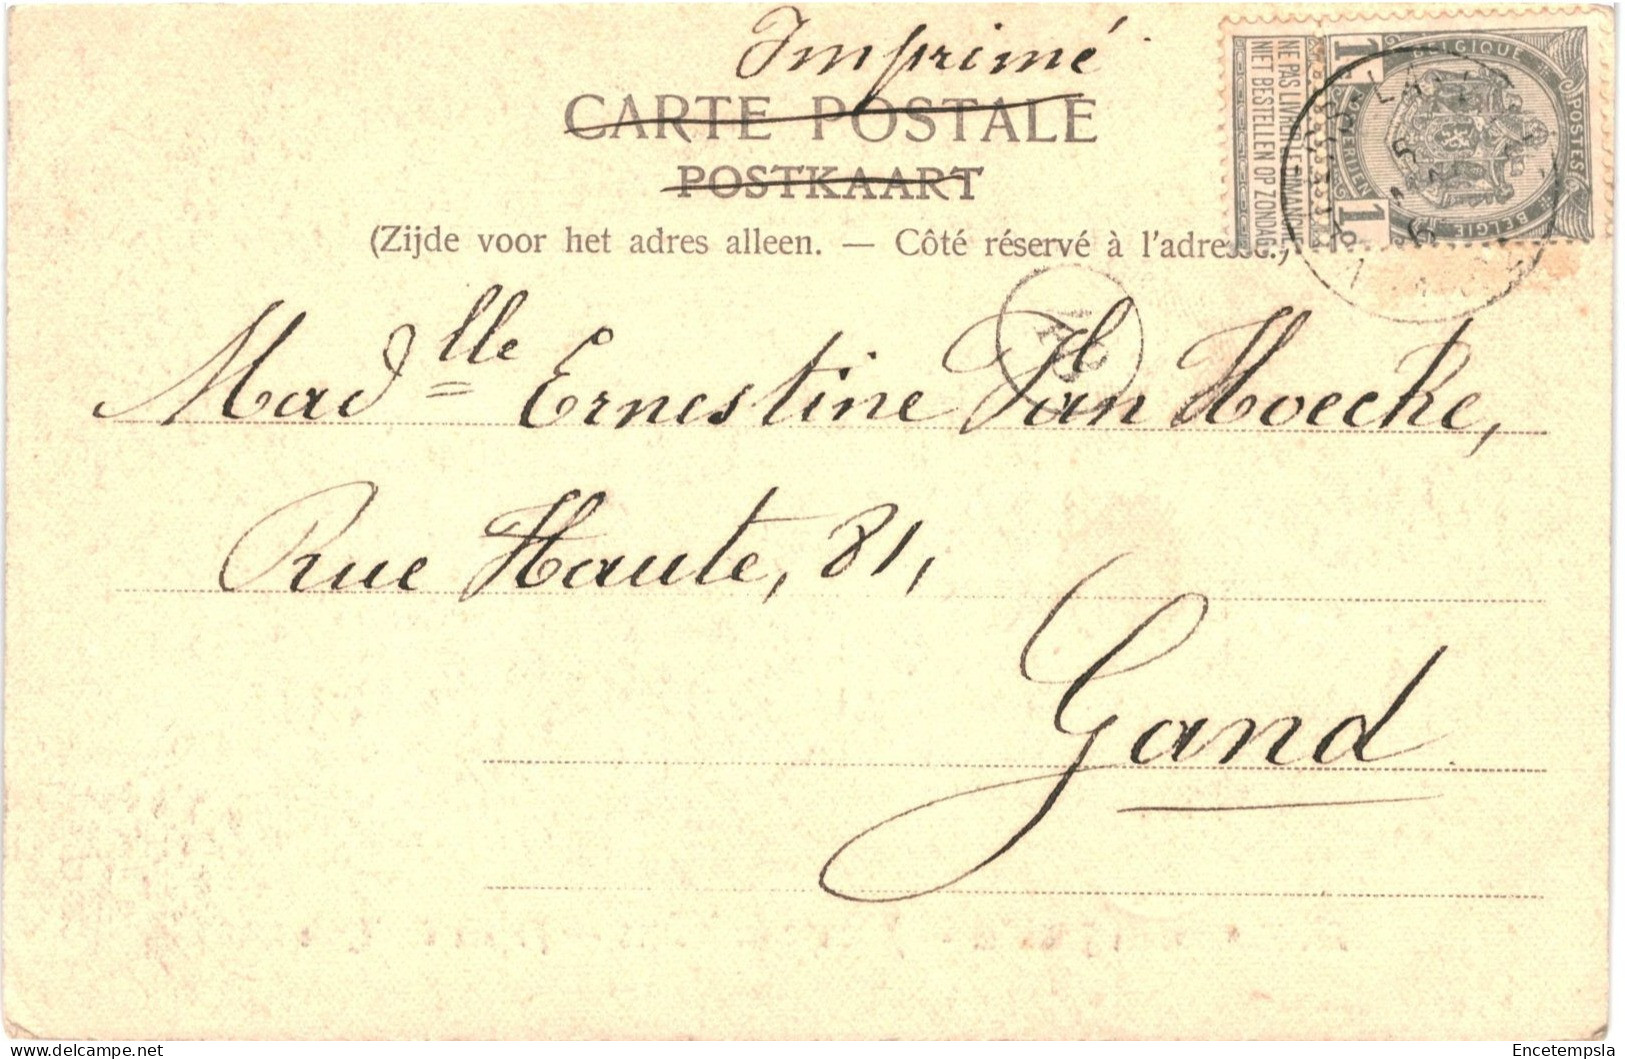 Imprimé
CARTE POSTALE
POSTKAART
(Zijde voor het adres alleen. — Côté réservé à l'adresse.)
NE PAS LIVRER LE DIMANCHE
NIET BESTELLEN OP ZONDAG
BELGIQUE
POSTES
BELGIE
1
1
Madlle Ernestine Van Hoecke,
Rue Haute, 81,
Gand
Encetempsla